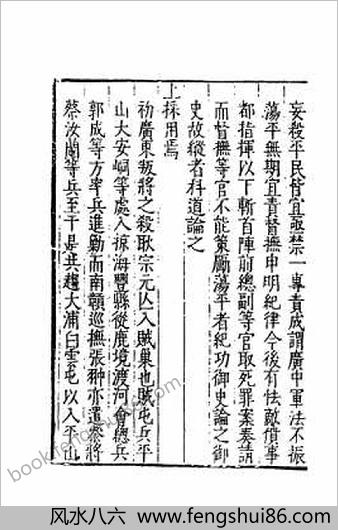 妄殺平民皆宜亟禁一專責成謂廣中軍法不振
蕩平無期宜責督撫申明紀律今後有怯敵僨事
都指揮以下斬首陣前總副等官取死罪案奏請
而督撫等官不能策勵蕩平者紀功御史論之御
史故縱者科道論之
上採用焉
初廣東叛將之殺耿宗元亾入賊巢也賊屯兵平
山大安峒等處入掠海豐縣從鹿境渡河會總兵
郭成等方率兵進勦而南贛巡撫張翀亦遣參將
蔡汝蘭等兵至于是兵趨大浦白雲屯以入平山
book.fengshui86.com
风水八六－www.fengshui86.com